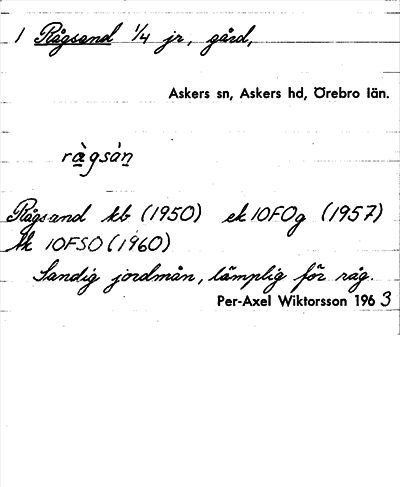 1 Rågsand 1/4 jr, gård,
Askers sn, Askers hd, Örebro län.
rågsán
Rågsand kb (1950) ek 10F0g (1957)
tk 10FSO (1960)
Sandig jordmån, lämplig för råg.
Per-Axel Wiktorsson 1963